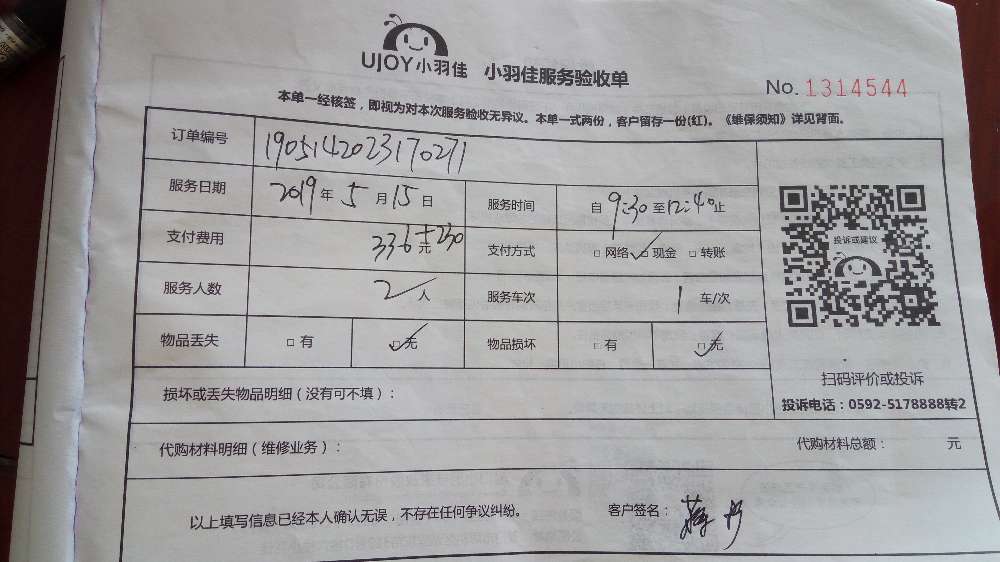 UJOY小羽佳 小羽佳服务验收单
No. 1314544
本单一经核签，即视为对本次服务验收无异议。本单一式两份，客户留存一份(红)。《维保须知》详见背面。
订单编号 1905142023170271
服务日期 2019年5月15日 服务时间 自9:30至12:40止
支付费用 336元+230 支付方式 □网络 □现金 □转账
投诉或建议
服务人数 2人 服务车次 1车/次
物品丢失 □有 □无 物品损坏 □有 □无
扫码评价或投诉
损坏或丢失物品明细（没有可不填）：
投诉电话：0592-5178888转2
代购材料明细（维修业务）： 代购材料总额： 元
以上填写信息已经本人确认无误，不存在任何争议纠纷。 客户签名：